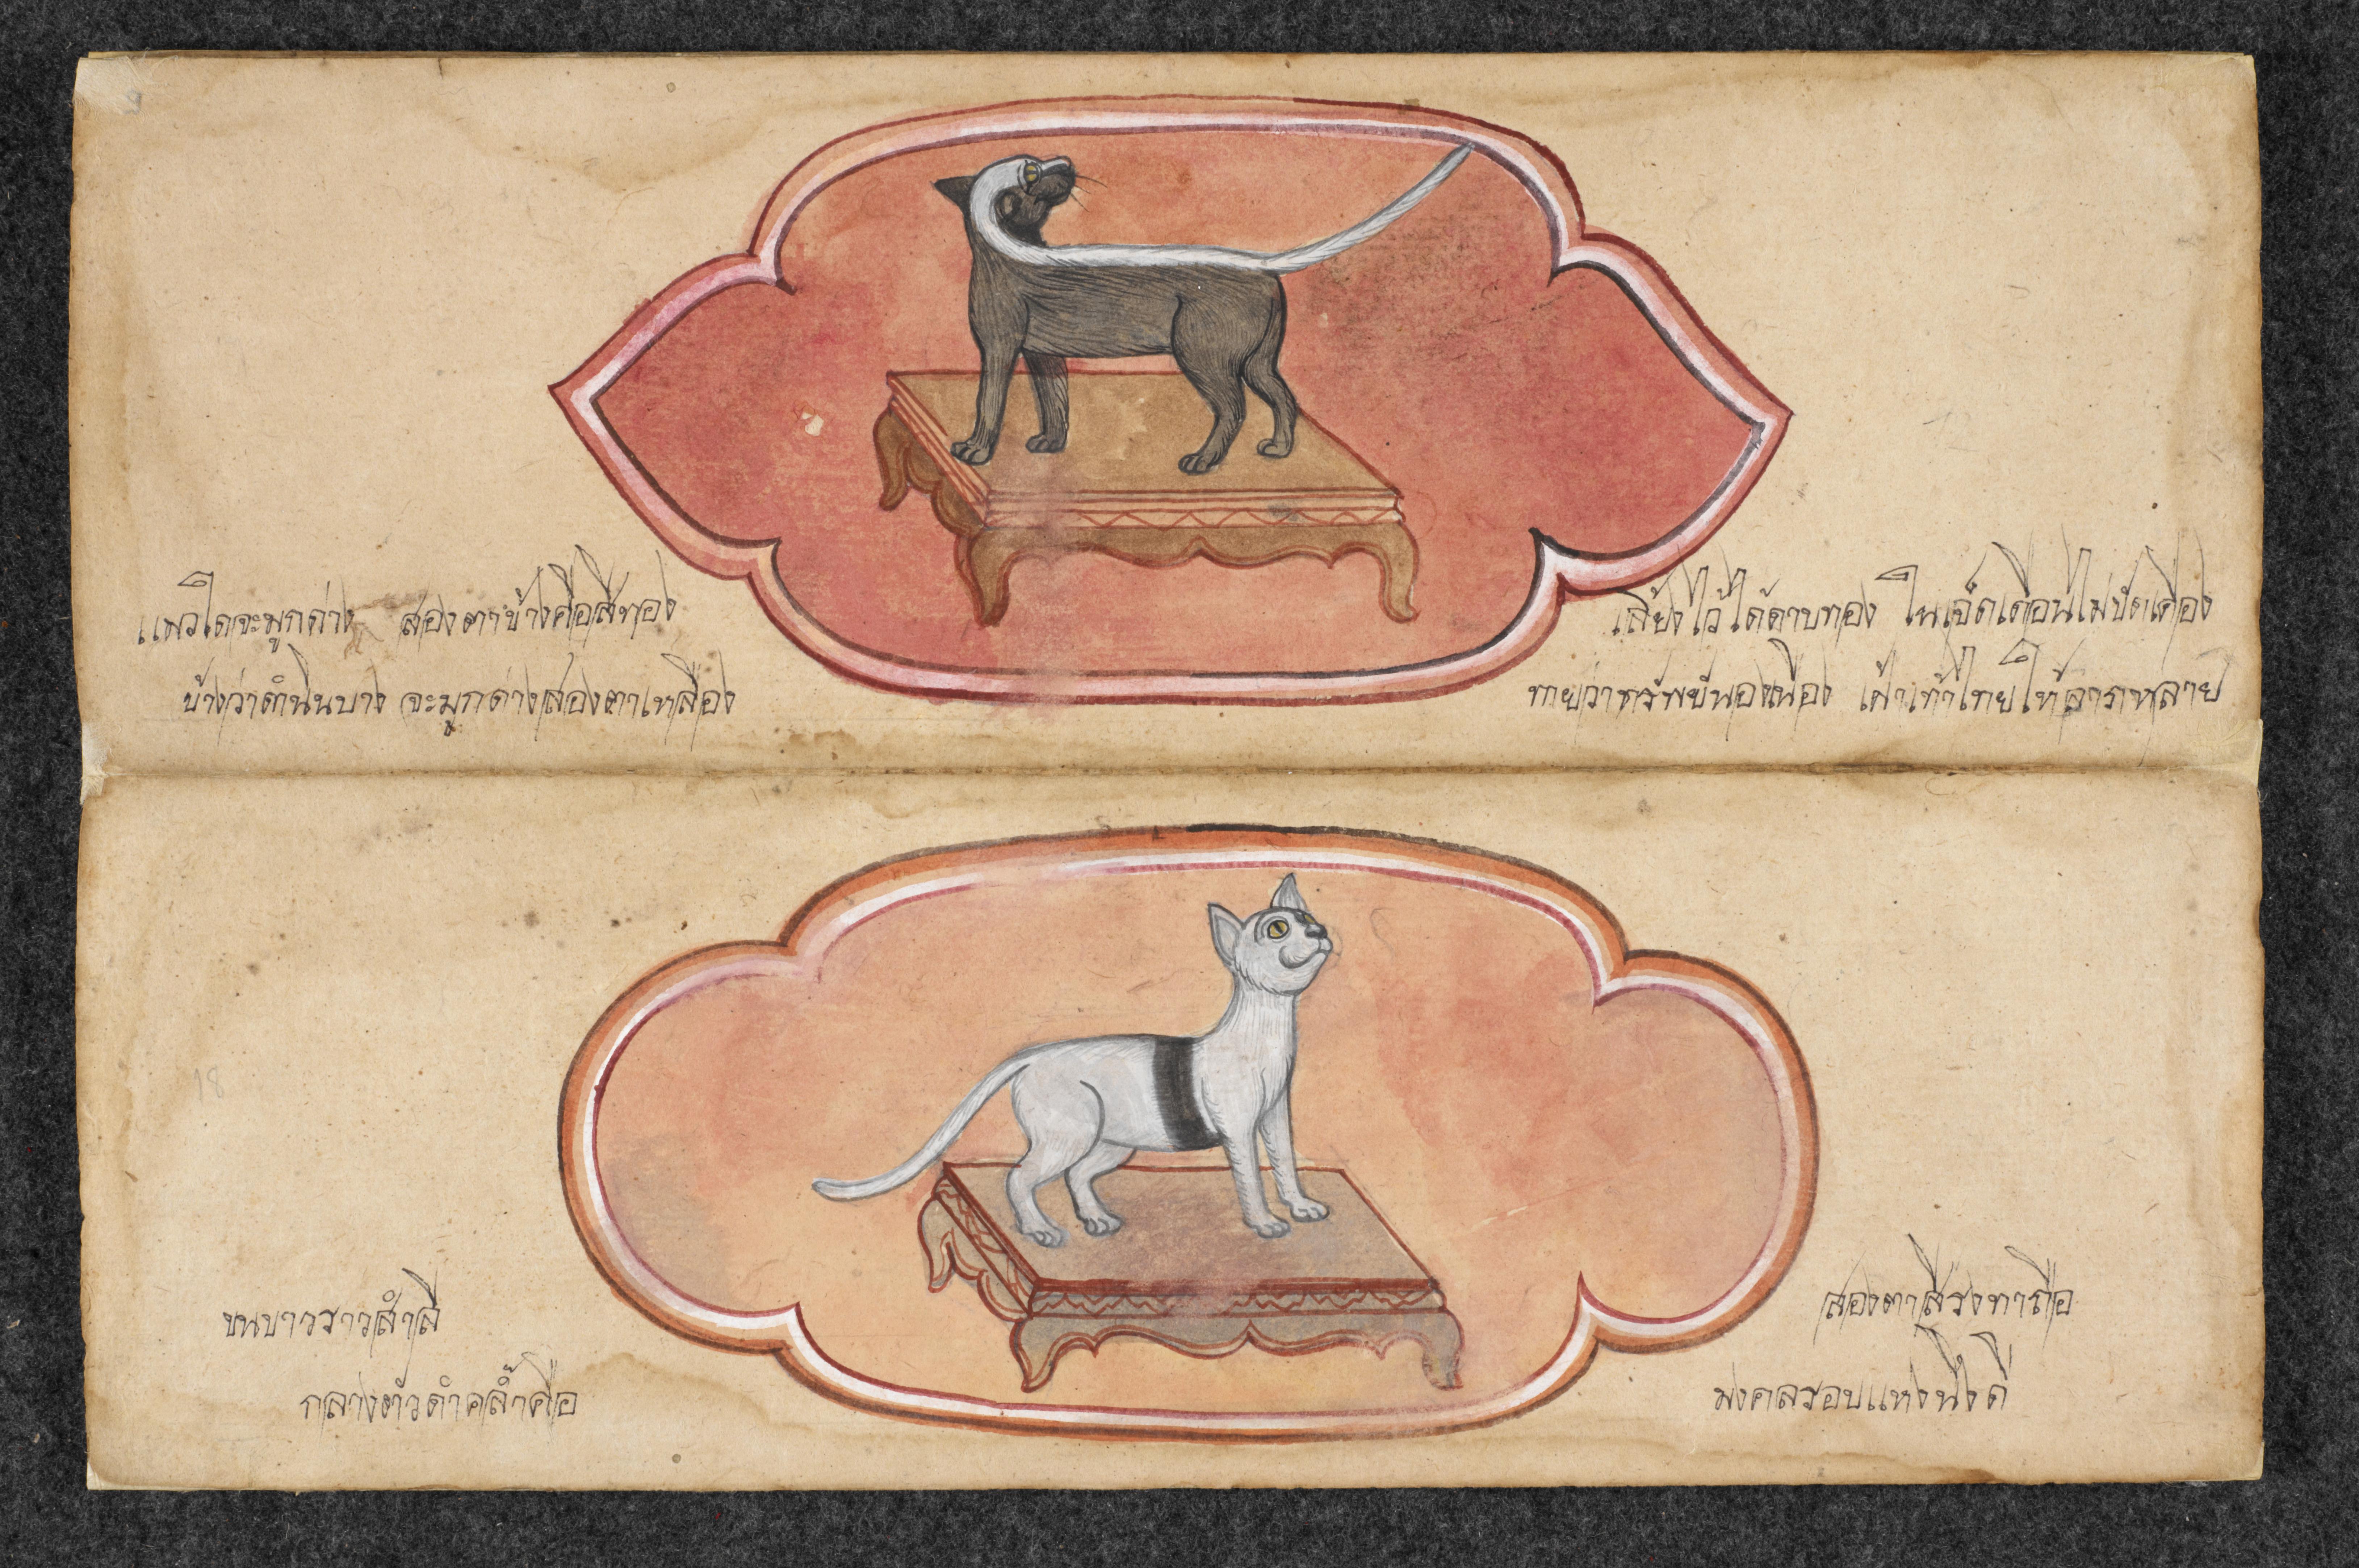 แมวใดจะมูกด่าง สองตาข้างคือสีทอง
เลี้ยงไว้ได้ดาบทอง ในเจ็ดเดือนไม่ขัดเคือง
ข้างว่าดำนินบาง จะมูกด่างสองตาเหลือง
ทายว่าทรัพย์นองเนือง เฝ้าเท้าไทยให้ลาภหลาย
ขนขาวราวสำลี
สองตาสีรงทาถือ
กลางตัวดำคล้ำคือ
มงคลรอบแห่งนึ่งดี
18